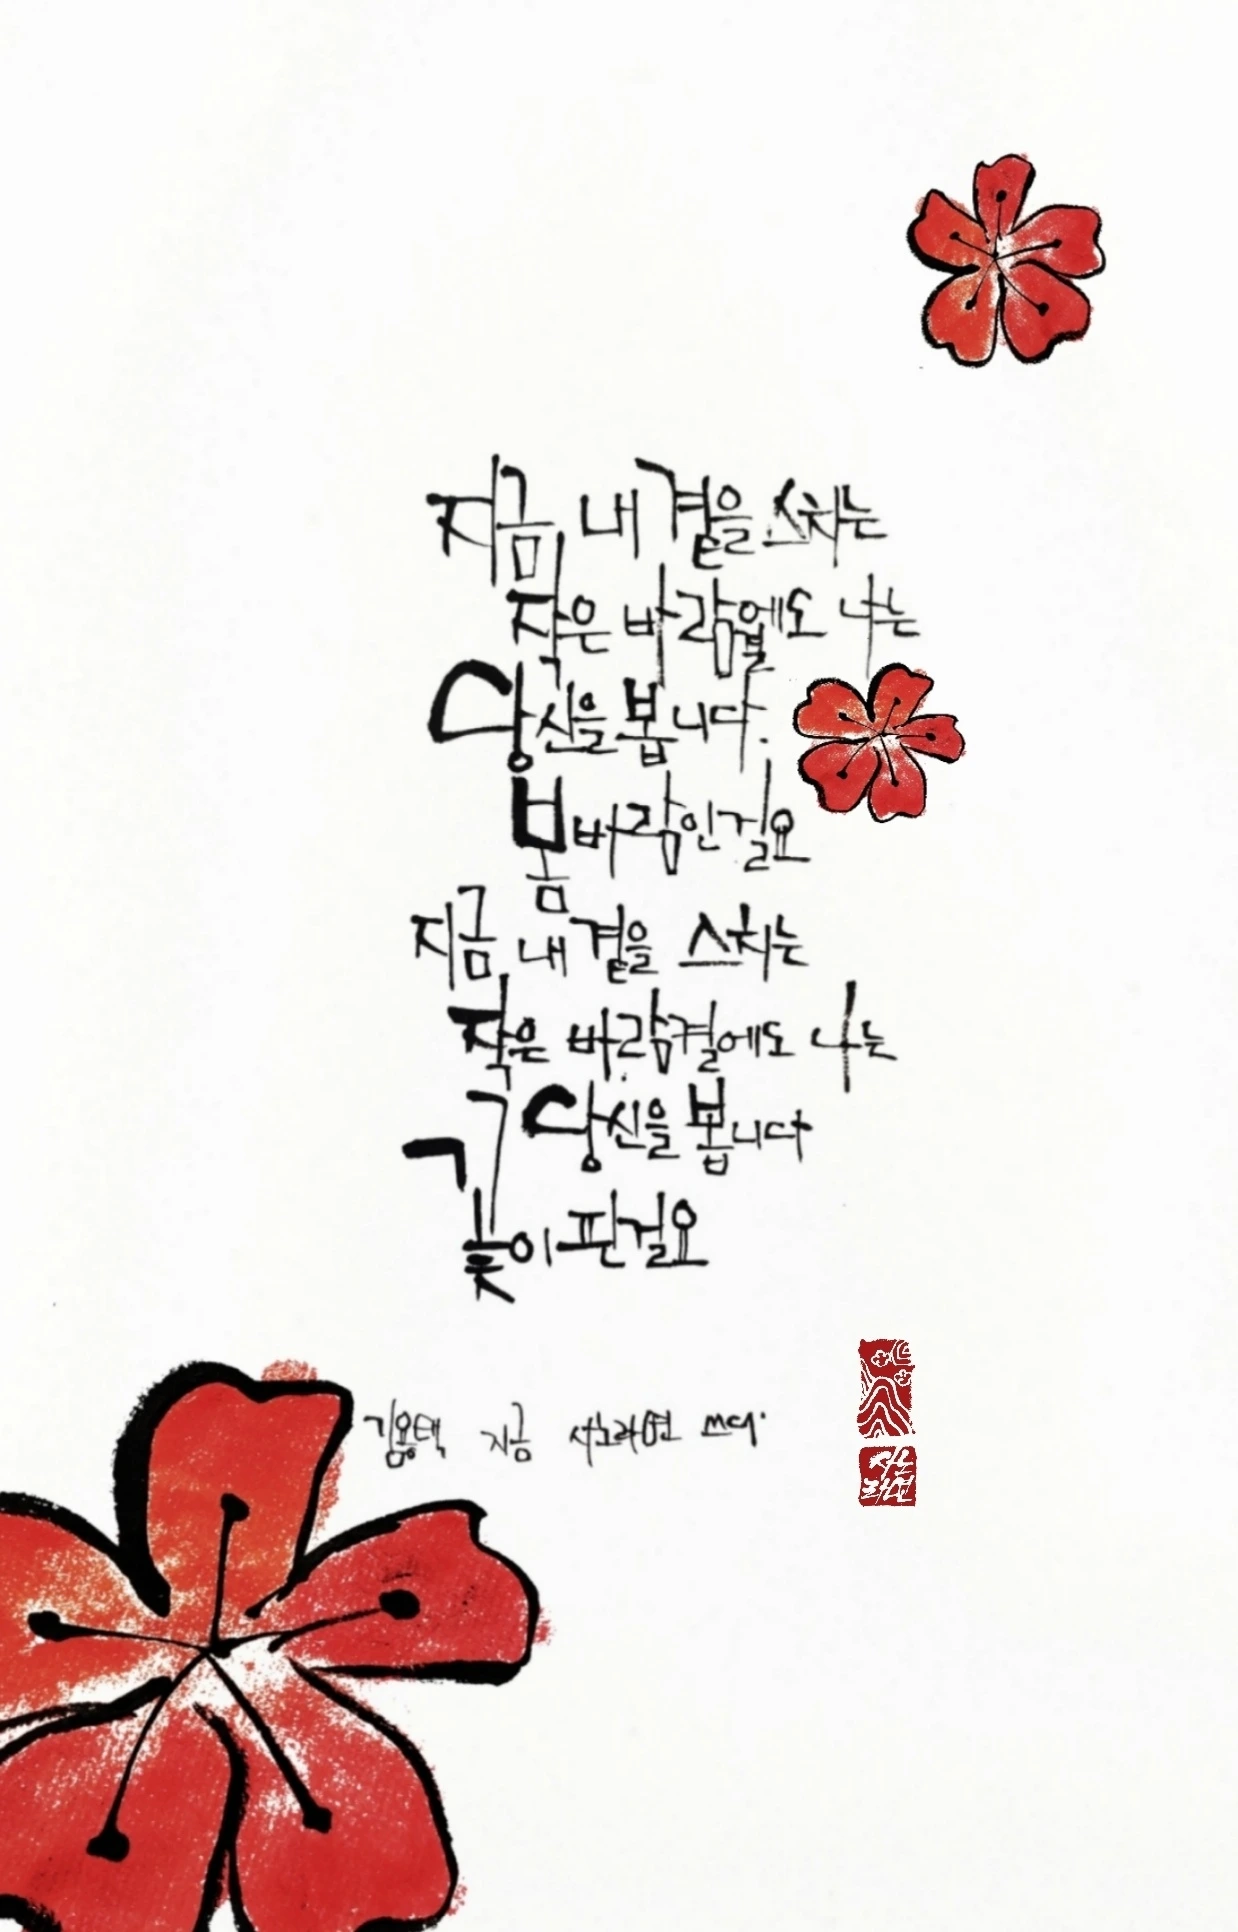 지금 내 곁을 스치는
작은 바람결에도 나는
당신을 봅니다.
봄바람인걸요
지금 내 곁을 스치는
작은 바람결에도 나는
당신을 봅니다
꽃이 핀걸요
김용택 지금 서노라면